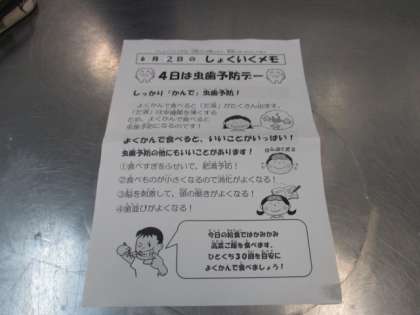 6月2日の しょくいくメモ
4日は虫歯予防デー
しっかり「かんで」虫歯予防!
よくかんで食べると「だ液」がたくさん出ます。
「だ液」は虫歯菌を薄くする
ため、よくかんで食べると
虫歯予防になるのです!
よくかんで食べると、いいことがいっぱい!
虫歯予防の他にもいいことがあります!
①食べすぎをふせいで、肥満予防!
②食べものが小さくなるので消化がよくなる!
③脳を刺激して、頭の働きがよくなる!
④歯並びがよくなる!
今日の給食ではかみかみ
高菜ご飯を食べます。
ひとくち30回を目安に
よくかんで食べましょう!